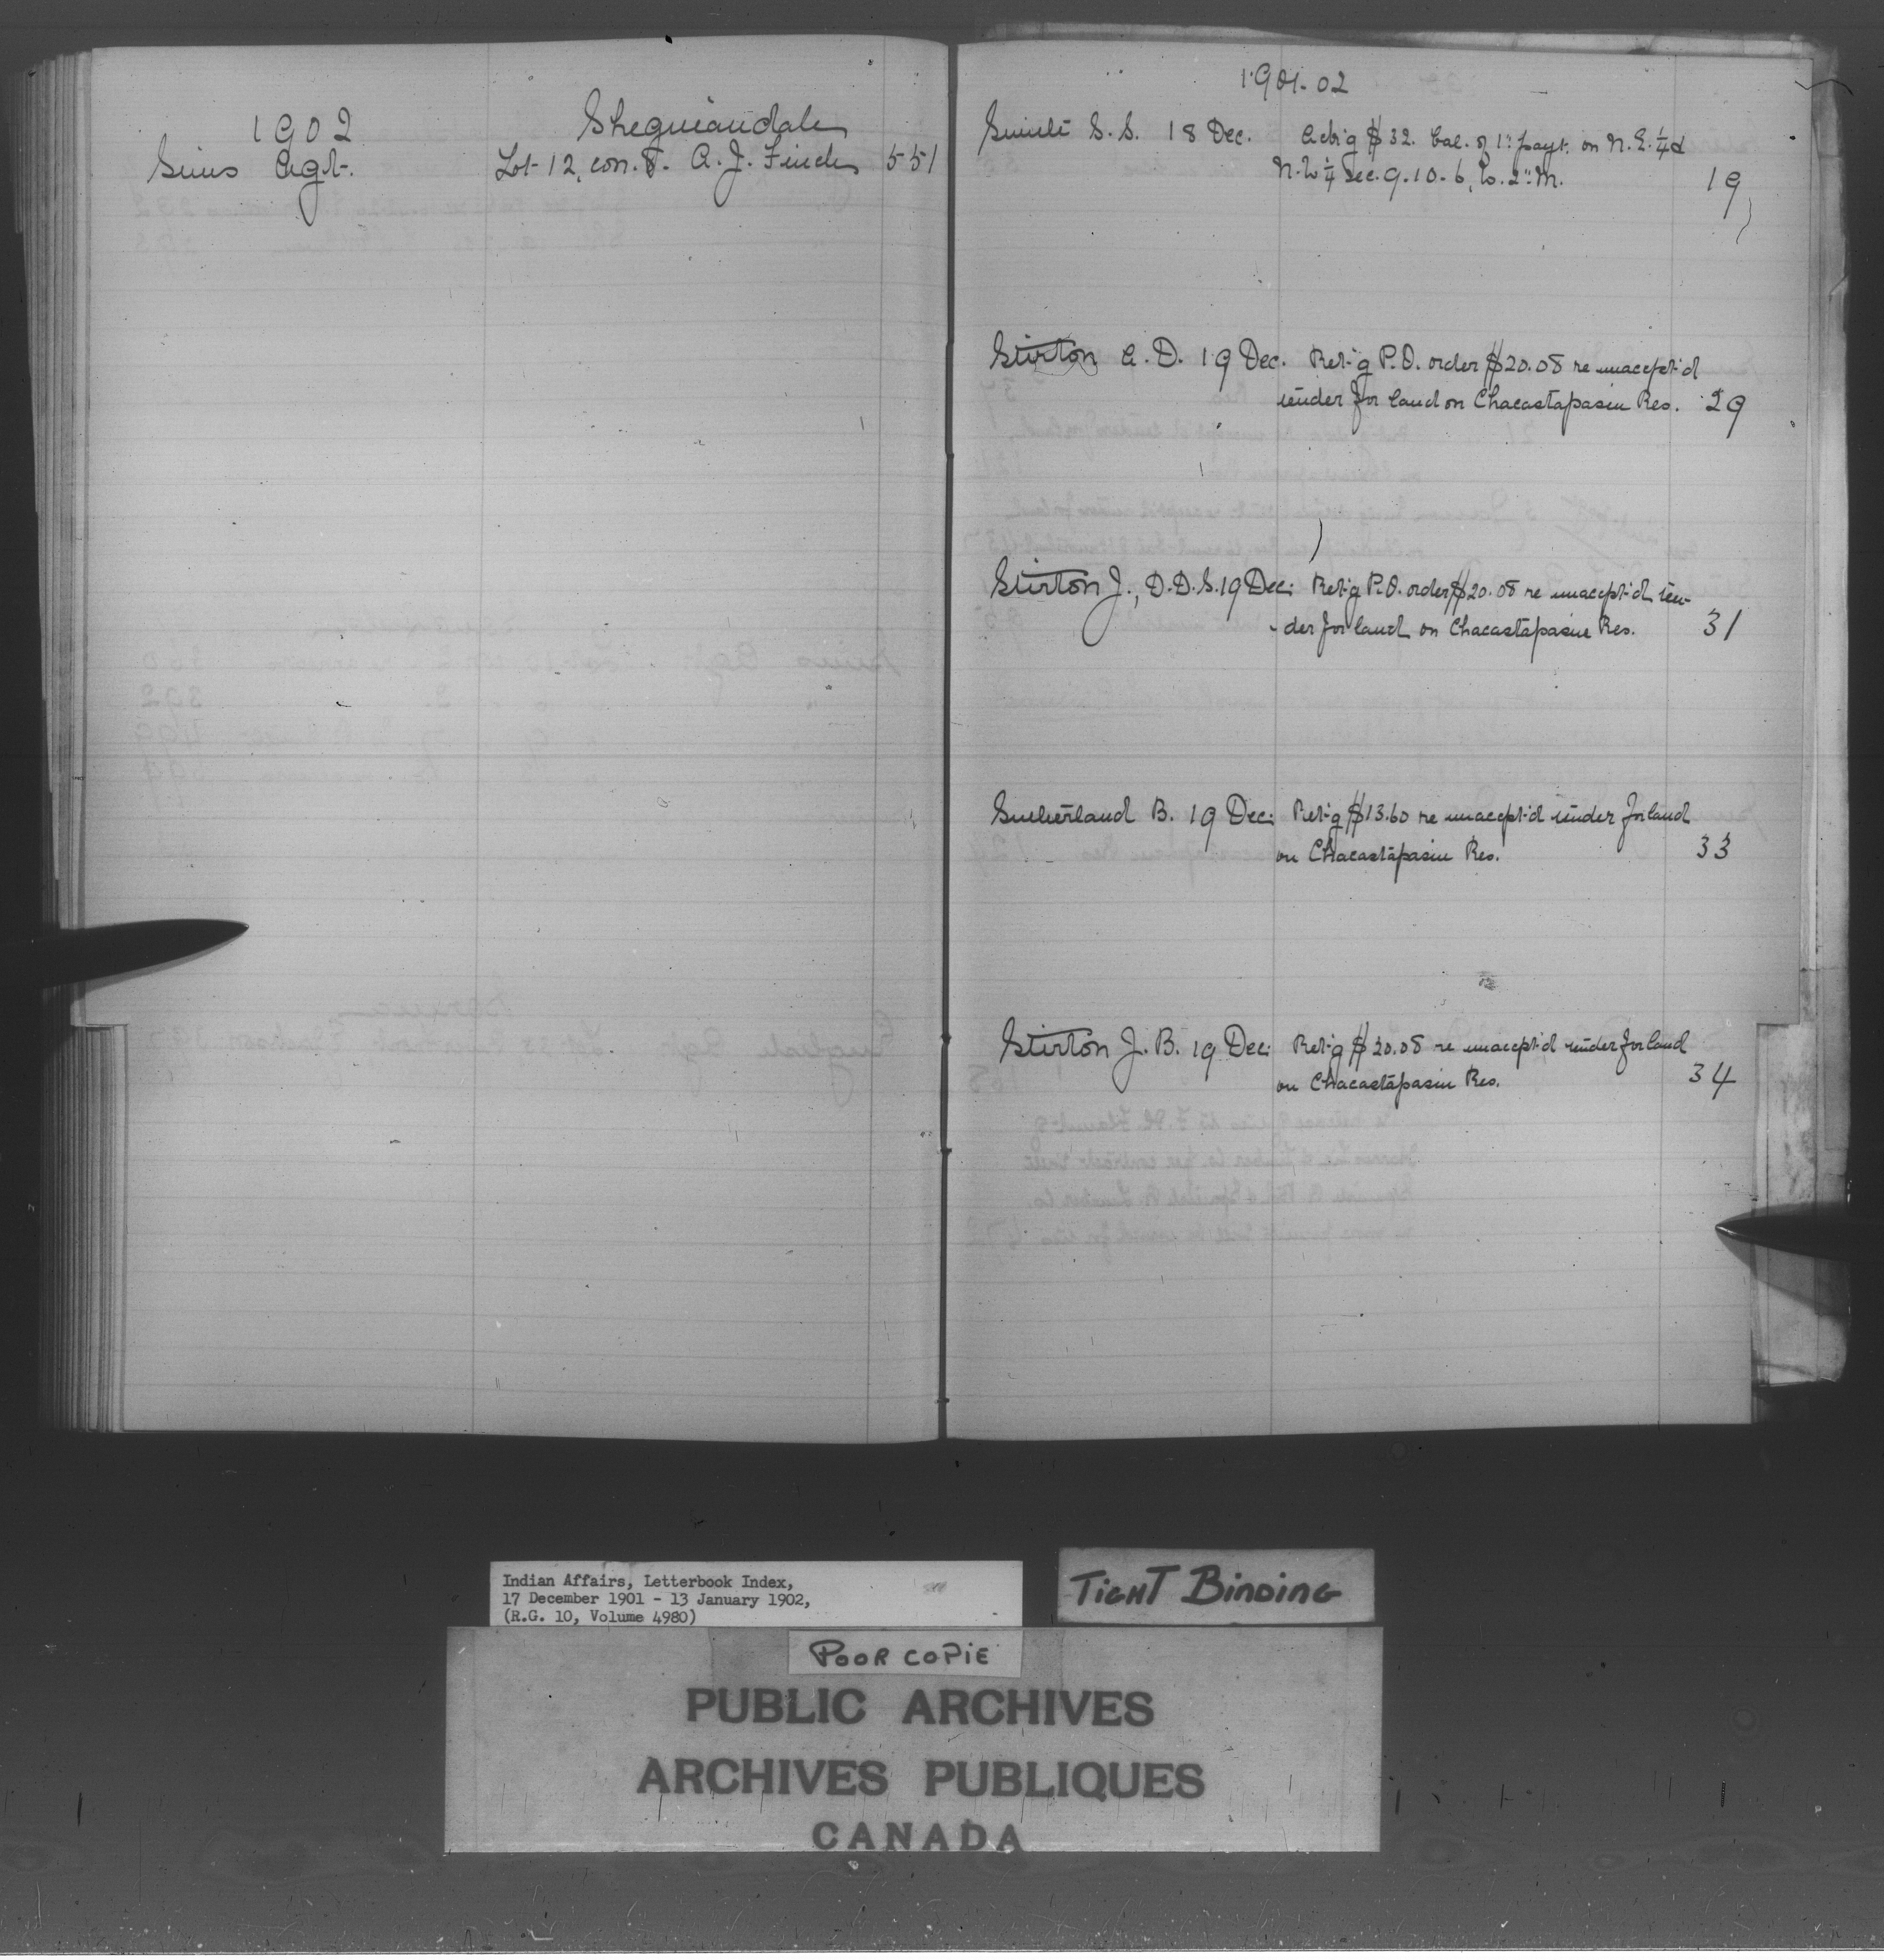 1902
Sheguiandah
Sims Agt. Lot 12, con. 8. A. J. Finch 551
1901-02
Smith S. S. 18 Dec. Ackn'g $32. bal. of 1st payt. on N.E. ¼ &
N.W ¼ Sec. 9-10-6, W. 2nd M. 19
Stirton A. D. 19 Dec. Ret'g P.O. order $20.08 re unaccept'd
tender for land on Chacastapasin Res. 29
Stirton J., D.D.S. 19 Dec: Ret'g P.O. order $20.08 re unaccept'd ten-
-der for land on Chacastapasin Res. 31
Sutherland B. 19 Dec: Ret'g $13.60 re unaccept'd tender for land
on Chacastapasin Res. 33
Stirton J. B. 19 Dec: Ret'g $20.08 re unaccept'd tender for land
on Chacastapasin Res. 34
Indian Affairs, Letterbook Index,
17 December 1901 - 13 January 1902,
(R.G. 10, Volume 4980)
TIGHT BINDING
POOR COPIE
PUBLIC ARCHIVES
ARCHIVES PUBLIQUES
CANADA